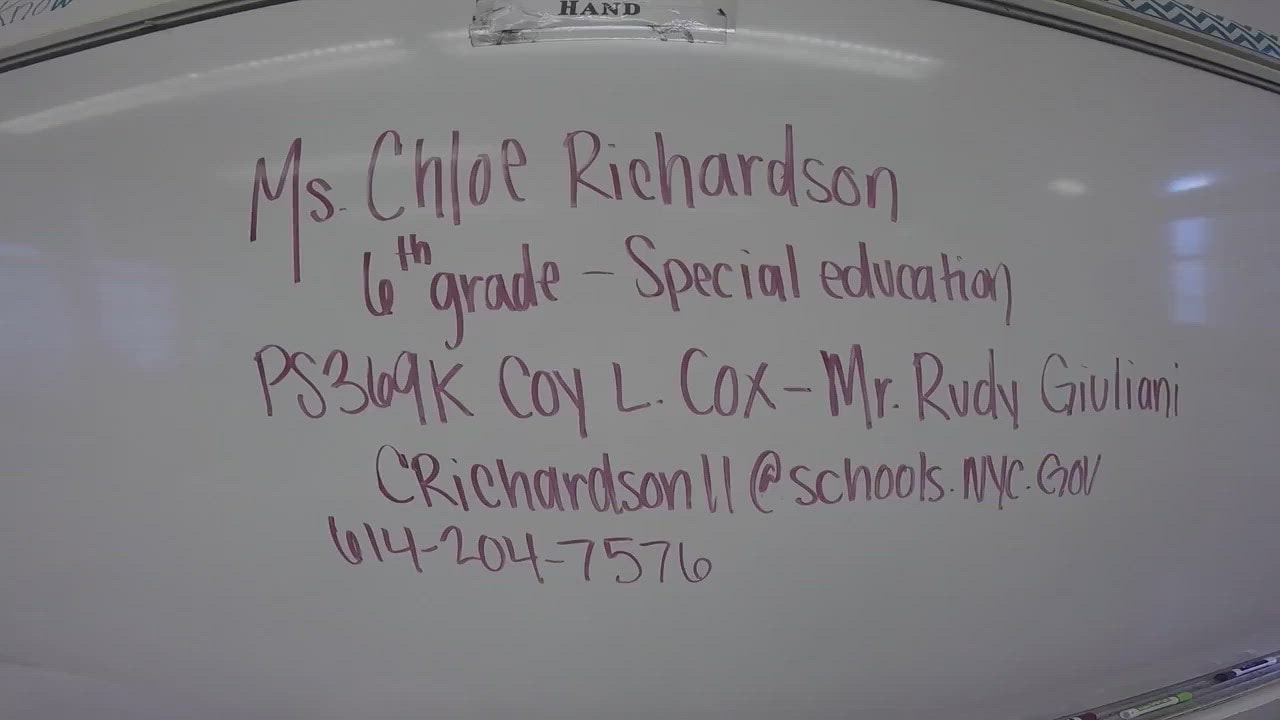 Know
HAND
Ms. Chloe Richardson
6th grade - Special education
PS369K Coy L. Cox - Mr. Rudy Giuliani
CRichardson11@schools.NYC.GOV
614-204-7576